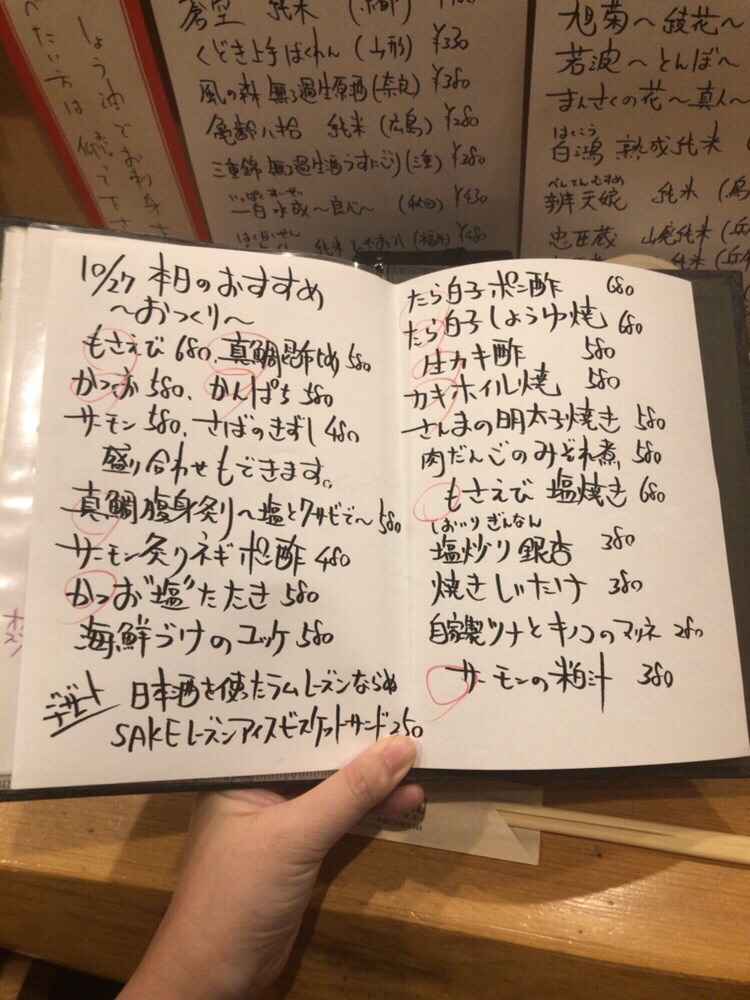 しょう油でお刺身さ
べたい方は
蒼空 純米
くどき上手ばくれん(山形) ¥330
風の森 無ろ過生原酒(奈良) ¥380
亀齢 八拾 純米(広島) ¥280
三重錦 無ろ過生酒うすにごり(三重) ¥380
一白水成～良心～ (秋田) ¥430
¥480
旭菊～綾花～
若波～とんぼ～
まんさくの花～真人～
はくこう
白鴻 熟成純米
べんてんむすめ
辨天娘 純米
忠臣蔵 山廃純米
10/27 本日のおすすめ
～おつくり～
もさえび 680、真鯛昆布〆 580
かつお 580、かんぱち 580
サーモン 580、さばのきずし 480
盛り合わせもできます。
真鯛腹身炙り～塩とワサビで～ 580
サーモン炙りネギポン酢 480
かつお"塩"たたき 580
海鮮づけのユッケ 580
デザート 日本酒を使ったラムレーズンならぬ
SAKEレーズンアイスビスケットサンド 250
たら白子ポン酢 680
たら白子しょうゆ焼 680
生カキ酢 580
カキホイル焼 580
さんまの明太子焼き 580
肉だんごのみぞれ煮 580
もさえび 塩焼き 680
しおいりぎんなん
塩炒り銀杏 380
焼きしいたけ 380
自家製ツナとキノコのマリネ 280
サーモンの粕汁 380